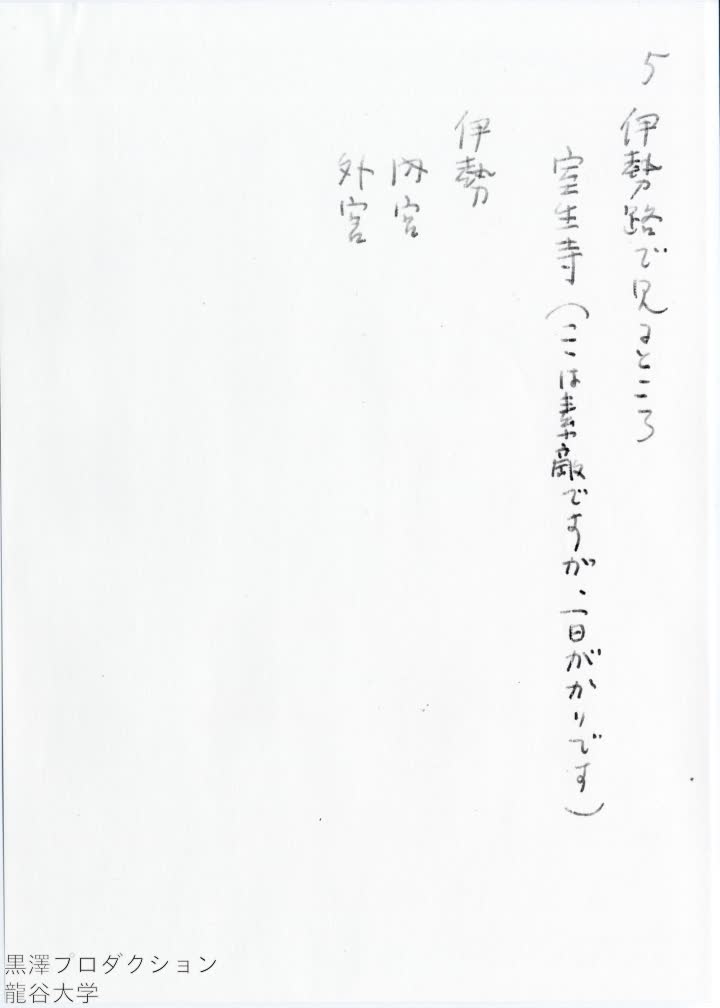 5 伊勢路で見るところ
室生寺(ここは素敵ですが、一日がかりです)
伊勢
内宮
外宮
黒澤プロダクション
龍谷大学